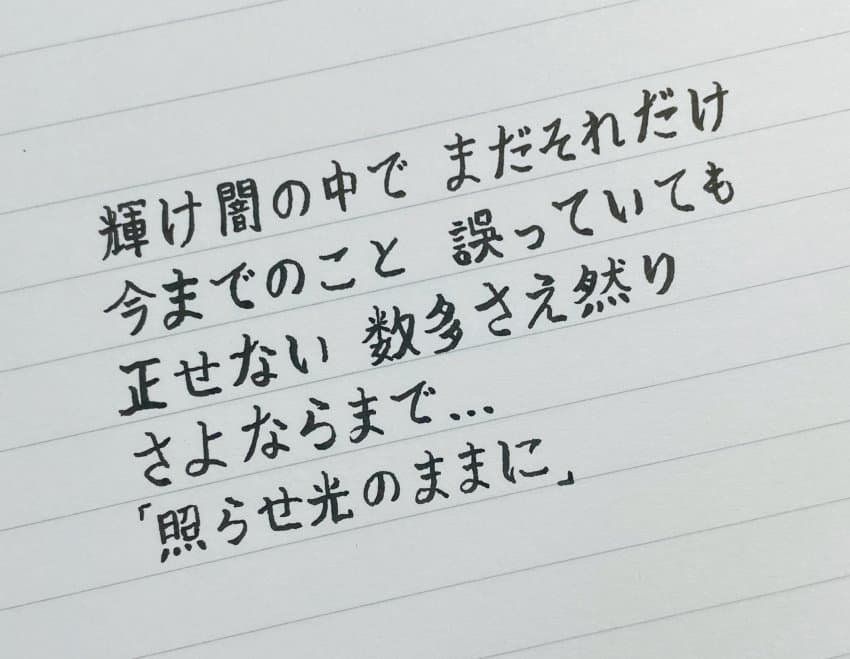 輝け闇の中で まだそれだけ
今までのこと 誤っていても
正せない 数多さえ然り
さよならまで...
「照らせ光のままに」